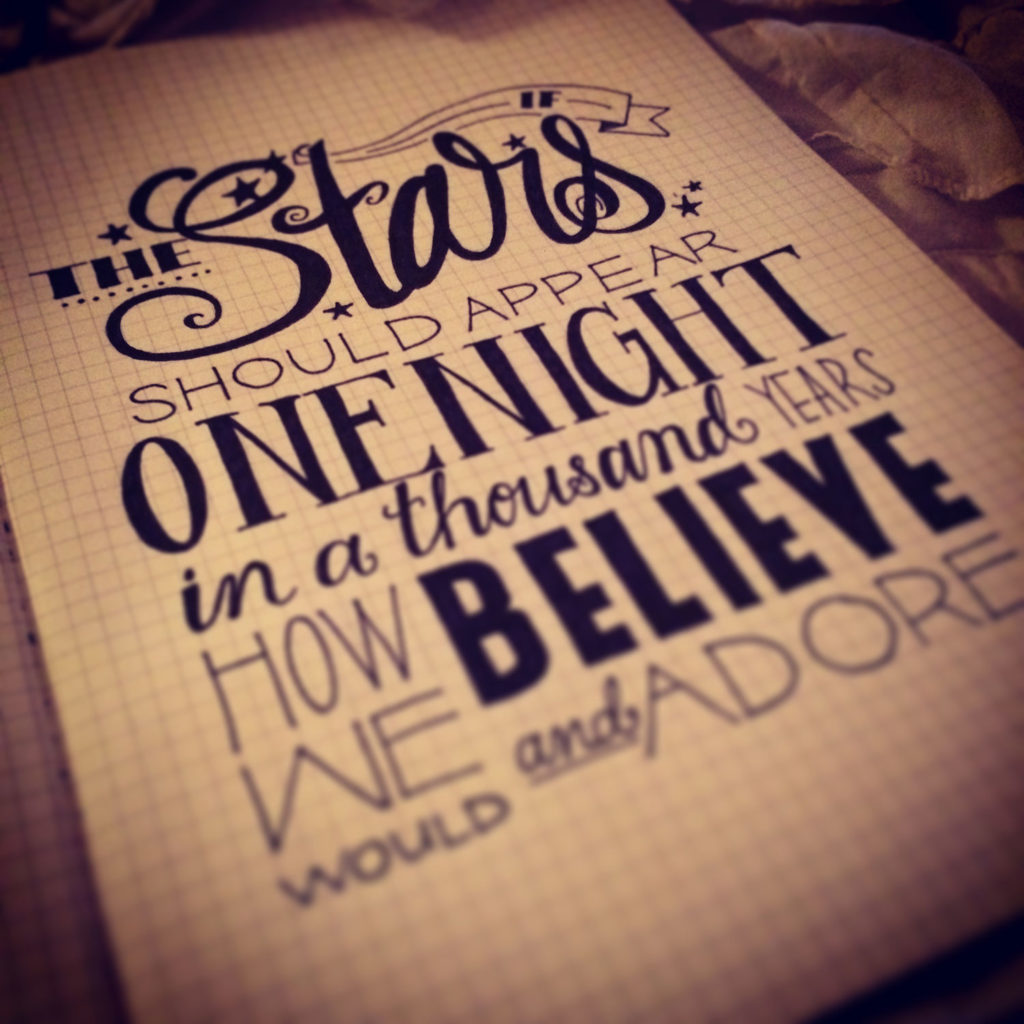 IF
THE Stars
SHOULD APPEAR
ONE NIGHT
in a thousand YEARS
HOW WE WOULD
BELIEVE
and ADORE